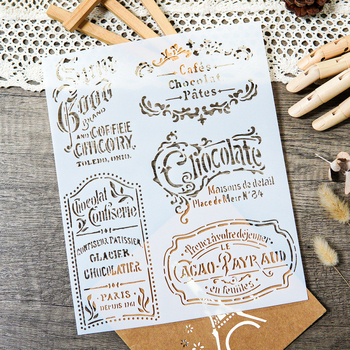 Good
BRAND
AND COFFEE
CHICORY.
TOLEDO, OHIO.
Cafés
Chocolat
Pâtes
Chocolate
Maisons de detail
Place de Meir Nº 34
Chocolat
Confiserie
CONFISEUR PATISSIER
GLACIER
CHOCOLATIER
PARIS
DEPUIS 1761
Prenez à votre déjeuner
LE
CACAO-PAYRAUD
en feuilles